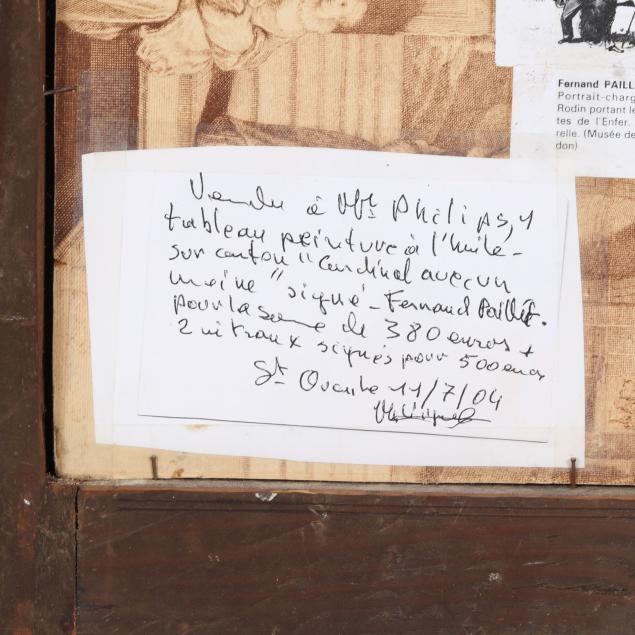 Fernand PAILL
Portrait-charg
Rodin portant le
tes de l'Enfer.
relle. (Musée de
don)
Vendu à Mr Philips, 1
tableau peinture à l'huile -
sur carton "Cardinal avec un
moine" signé - Fernand Paillet.
pour la somme de 380 euros +
2 vitraux signés pour 500 euros
St Ouen le 11/7/04